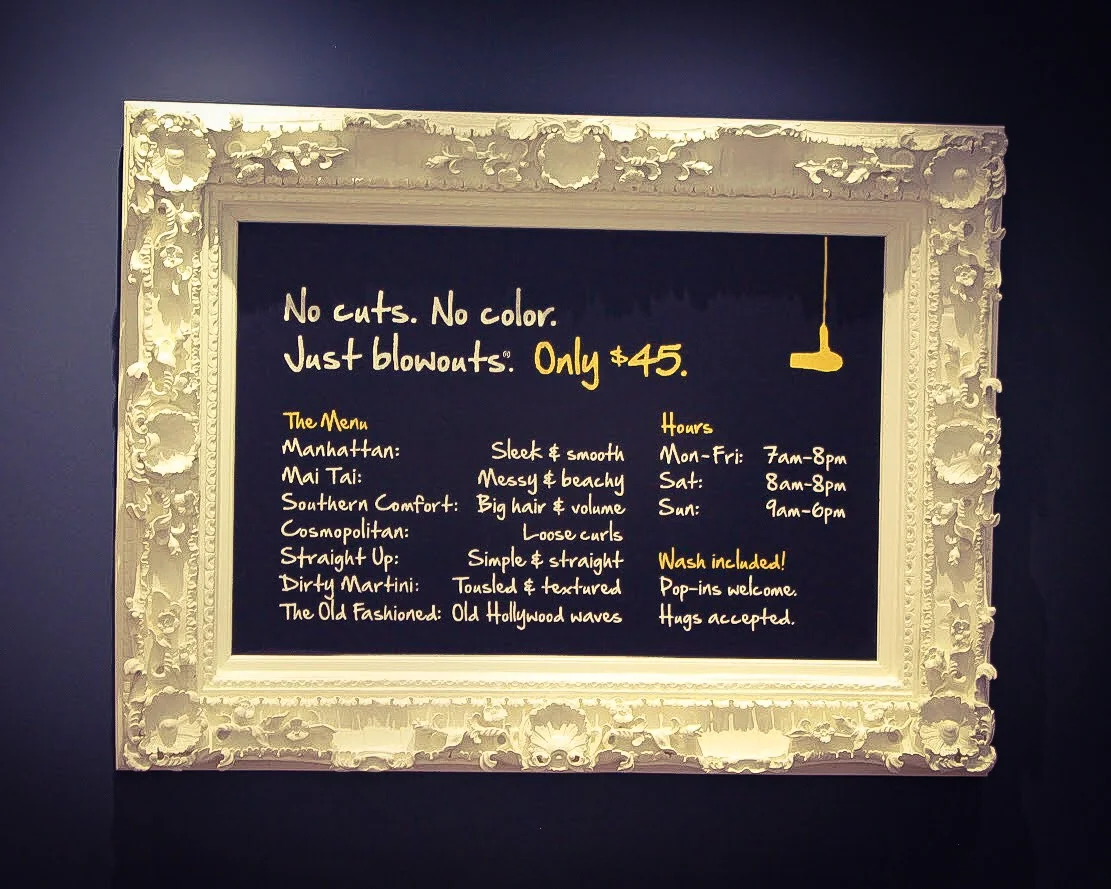 No cuts. No color.
Just blowouts.® Only $45.
The Menu
Manhattan: Sleek & smooth
Mai Tai: Messy & beachy
Southern Comfort: Big hair & volume
Cosmopolitan: Loose curls
Straight Up: Simple & straight
Dirty Martini: Tousled & textured
The Old Fashioned: Old Hollywood waves
Hours
Mon-Fri: 7am-8pm
Sat: 8am-8pm
Sun: 9am-6pm
Wash included!
Pop-ins welcome.
Hugs accepted.